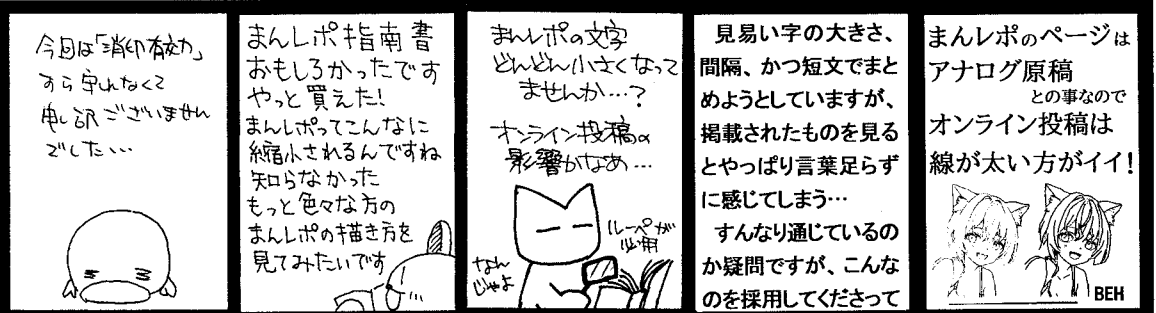 今回は「消印有効」
すら守れなくて
申し訳ございません
でした…
まんレポ指南書
おもしろかったです
やっと買えた!
まんレポってこんなに
縮小されるんですね
知らなかった
もっと色々な方の
まんレポの描き方を
見てみたいです
まんレポの文字
どんどん小さくなって
ませんか…?
オンライン投稿の
影響かなあ…
ルーペが
必用
なん
じゃよ
見易い字の大きさ、
間隔、かつ短文でまと
めようとしていますが、
掲載されたものを見る
とやっぱり言葉足らず
に感じてしまう…
すんなり通じているの
か疑問ですが、こんな
のを採用してくださって
まんレポのページは
アナログ原稿
との事なので
オンライン投稿は
線が太い方がイイ!
BEH